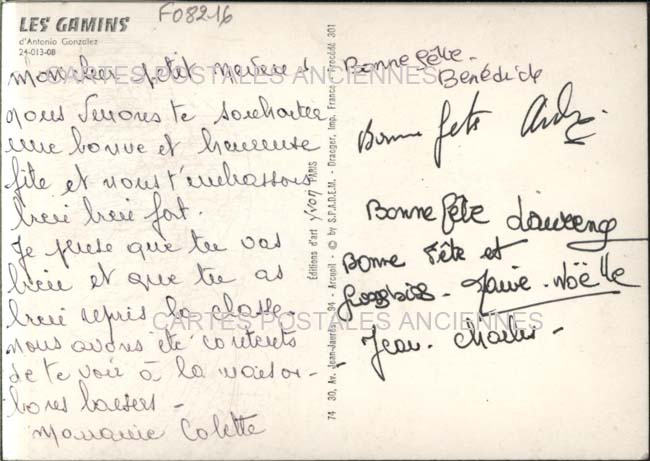 F08216
LES GAMINS
d'Antonio Gonzalez
24-013-08
mon cher petit
nous venons te souhaiter
une bonne et heureuse
fête et nous t'embrassons
bien bien fort.
Je pense que tu vas
bien et que tu as
bien repris la classe.
nous avons été contents
de te voir à la maison -
bons baisers -
Mamanie Colette
74 30, Av. Jean-Jaurès, 94 - Arcueil - © by S.P.A.D.E.M. - Draeger, Imp. France - Procédé 301
Éditions d'art YVON PARIS
Bonne fête
Bénédicte
Bonne fete
Bonne fête Laurence
Bonne Fête et
Marie-Noëlle
Jean-Charles -
CARTES POSTALES ANCIENNES
CARTES POSTALES ANCIENNES